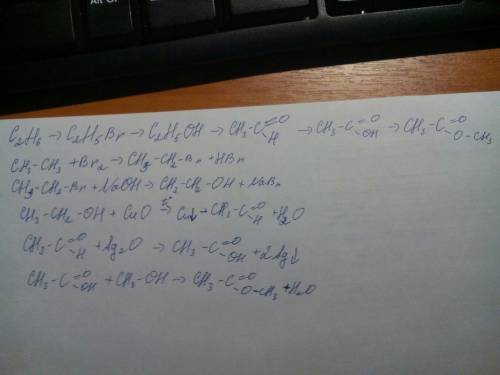 Alt Gr
C₂H₆ → C₂H₅Br → C₂H₅OH → CH₃-C(=O)H → CH₃-C(=O)OH → CH₃-C(=O)O-CH₃
CH₃-CH₃ + Br₂ → CH₃-CH₂-Br + HBr
CH₃-CH₂-Br + NaOH → CH₃-CH₂-OH + NaBr
CH₃-CH₂-OH + CuO →(t°) Cu↓ + CH₃-C(=O)H + H₂O
CH₃-C(=O)H + Ag₂O → CH₃-C(=O)OH + 2Ag↓
CH₃-C(=O)OH + CH₃-OH → CH₃-C(=O)O-CH₃ + H₂O